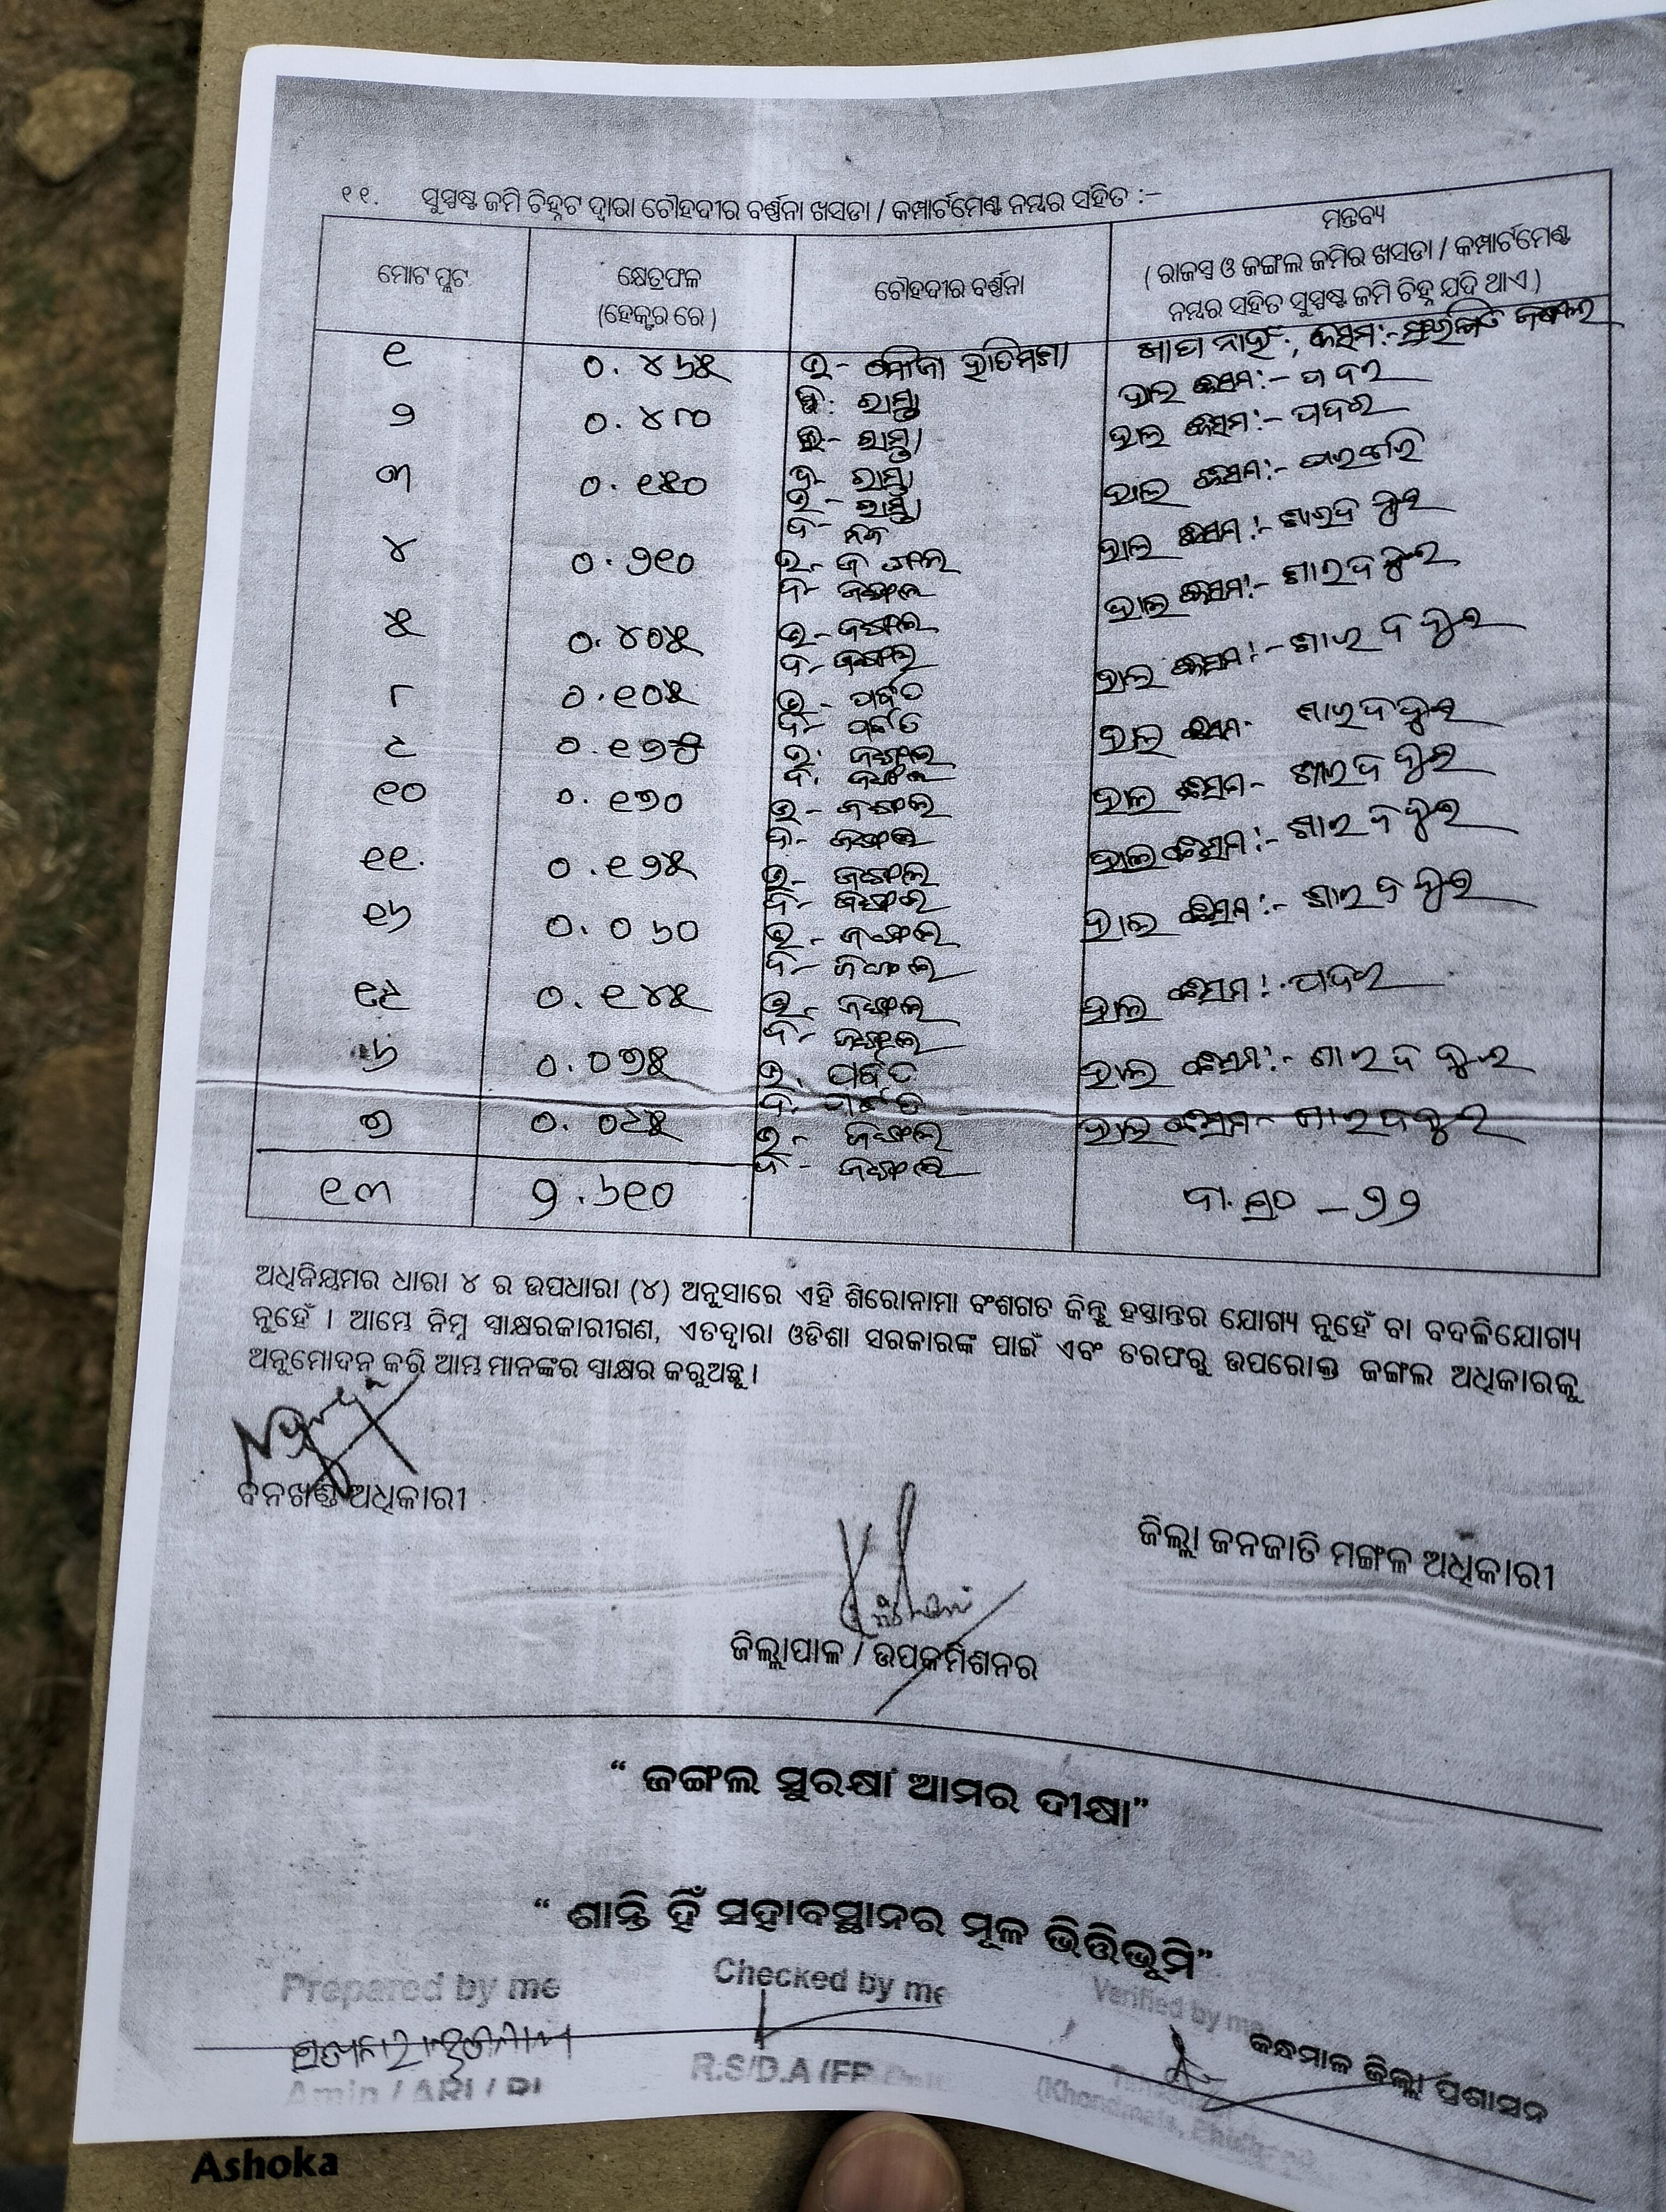 ୧୧. ସୁସ୍ପଷ୍ଟ ଜମି ଚିହ୍ନଟ ଦ୍ୱାରା ଚୌହଦୀର ବର୍ଣ୍ଣନା ଖସଡା / କମ୍ପାର୍ଟମେଣ୍ଟ ନମ୍ବର ସହିତ :-
ମୋଟ ପ୍ଲଟ
କ୍ଷେତ୍ରଫଳ
(ହେକ୍ଟର ରେ)
ଚୌହଦୀର ବର୍ଣ୍ଣନା
ମନ୍ତବ୍ୟ
( ରାଜସ୍ୱ ଓ ଜଙ୍ଗଲ ଜମିର ଖସଡା / କମ୍ପାର୍ଟମେଣ୍ଟ
ନମ୍ବର ସହିତ ସୁସ୍ପଷ୍ଟ ଜମି ଚିହ୍ନ ଯଦି ଥାଏ )
୧ ୦.୪୬୫ ଉ- ମୌଜା
ଦ: ରାସ୍ତା ହାଲ କିସମ:- ପଦର
୨ ୦.୪୮୦ ଉ- ରାସ୍ତା ହାଲ କିସମ:- ପଦର
ଦ- ରାସ୍ତା
୩ ୦.୧୫୦ ଉ- ରାସ୍ତା ହାଲ କିସମ:-
ଦ-
୪ ୦.୨୧୦ ଉ- ଜଙ୍ଗଲ ହାଲ କିସମ:- ଶାରଦ
ଦ- ଜଙ୍ଗଲ
୫ ୦.୪୦୫ ଉ- ଜଙ୍ଗଲ ହାଲ କିସମ:- ଶାରଦ
ଦ- ଜଙ୍ଗଲ
୮ ୦.୧୦୫ ଉ- ପର୍ବତ ହାଲ କିସମ:- ଶାରଦ
ଦ- ପର୍ବତ
୯ ଉ: ଜଙ୍ଗଲ ହାଲ କିସମ- ଶାରଦ
ଦ: ଜଙ୍ଗଲ
୧୦ ୦.୧୭୦ ଉ- ଜଙ୍ଗଲ ହାଲ କିସମ- ଶାରଦ
ଦ- ଜଙ୍ଗଲ
୧୧. ୦.୧୨୫ ଉ- ଜଙ୍ଗଲ ହାଲ କିସମ:- ଶାରଦ
ଦ- ଜଙ୍ଗଲ
୧୬ ୦.୦୬୦ ଉ- ଜଙ୍ଗଲ ହାଲ କିସମ:- ଶାରଦ
ଦ- ଜଙ୍ଗଲ
୧୯ ୦.୧୪୫ ଉ- ଜଙ୍ଗଲ ହାଲ କିସମ: ପଦର
ଦ- ଜଙ୍ଗଲ
୬ ୦.୦୭୫ ଉ. ପର୍ବତ ହାଲ କିସମ:- ଶାରଦ
ଦ. ପର୍ବତ
୭ ୦.୦୯୫ ଉ- ଜଙ୍ଗଲ ହାଲ କିସମ- ଶାରଦ
ଦ- ଜଙ୍ଗଲ
୧୩ ୨.୬୧୦
ଅଧିନିୟମର ଧାରା ୪ ର ଉପଧାରା (୪) ଅନୁସାରେ ଏହି ଶିରୋନାମା ବଂଶଗତ କିନ୍ତୁ ହସ୍ତାନ୍ତର ଯୋଗ୍ୟ ନୁହେଁ ବା ବଦଳିଯୋଗ୍ୟ
ନୁହେଁ । ଆମ୍ଭେ ନିମ୍ନ ସ୍ୱାକ୍ଷରକାରୀଗଣ, ଏତଦ୍ୱାରା ଓଡିଶା ସରକାରଙ୍କ ପାଇଁ ଏବଂ ତରଫରୁ ଉପରୋକ୍ତ ଜଙ୍ଗଲ ଅଧିକାରକୁ
ଅନୁମୋଦନ କରି ଆମ୍ଭ ମାନଙ୍କର ସ୍ୱାକ୍ଷର କରୁଅଛୁ ।
ବନଖଣ୍ଡ ଅଧିକାରୀ
ଜିଲ୍ଲା ଜନଜାତି ମଙ୍ଗଳ ଅଧିକାରୀ
ଜିଲ୍ଲାପାଳ / ଉପକମିଶନର
“ ଜଙ୍ଗଲ ସୁରକ୍ଷା ଆମର ଦୀକ୍ଷା”
“ ଶାନ୍ତି ହିଁ ସହାବସ୍ଥାନର ମୂଳ ଭିତ୍ତିଭୂମି”
Prepared by me
Checked by me
Verified by me
କନ୍ଧମାଳ ଜିଲ୍ଲା ପ୍ରଶାସନ
Amin / ARI / RI
R.S/D.A
Ashoka